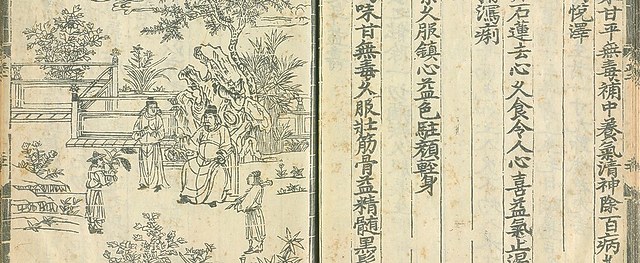 甘平無毒補中養氣清神除百病
悅澤
石蓮去心久食令人心喜益氣止渴
瀉痢
久服鎮心益色駐顏輕身
味甘無毒久服壯筋骨益精髓黑